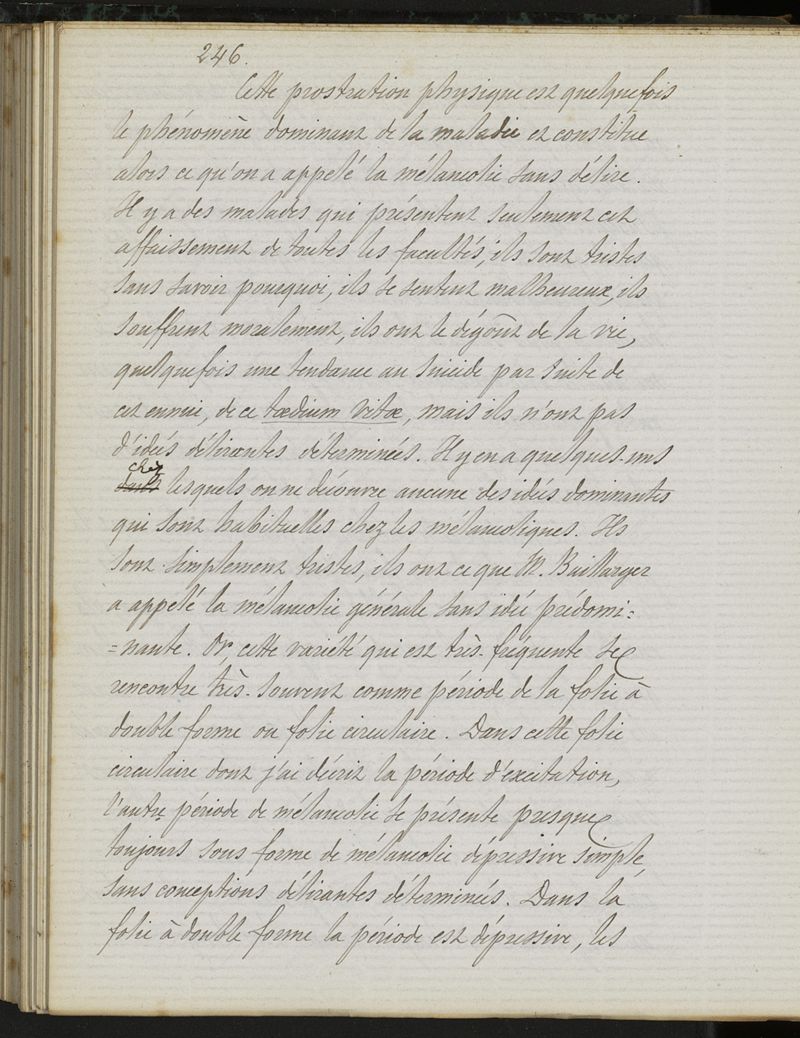 246.
Cette prostration physique est quelquefois
le phénomène dominant de la maladie et constitue
alors ce qu'on a appelé la mélancolie sans délire.
Il y a des malades qui présentent seulement cet
affaissement de toutes les facultés; ils sont tristes
sans savoir pourquoi, ils se sentent malheureux, ils
souffrent moralement, ils ont le dégoût de la vie,
quelquefois une tendance au suicide par suite de
cet ennui, de ce tœdium vitœ, mais ils n'ont pas
d'idées délirantes déterminées. Il y en a quelques-uns
chez
dans lesquels on ne découvre aucune des idées dominantes
qui sont habituelles chez les mélancoliques. Ils
sont simplement tristes, ils ont ce que M. Baillarger
a appelé la mélancolie générale sans idée prédomi=
=nante. Or, cette variété qui est très-fréquente se
rencontre très-souvent comme période de la folie à
double forme ou folie circulaire. Dans cette folie
circulaire dont j'ai décrit la période d'excitation,
l'autre période de mélancolie se présente presque
toujours sous forme de mélancolie dépressive simple,
sans conceptions délirantes déterminées. Dans la
folie à double forme la période est dépressive, les